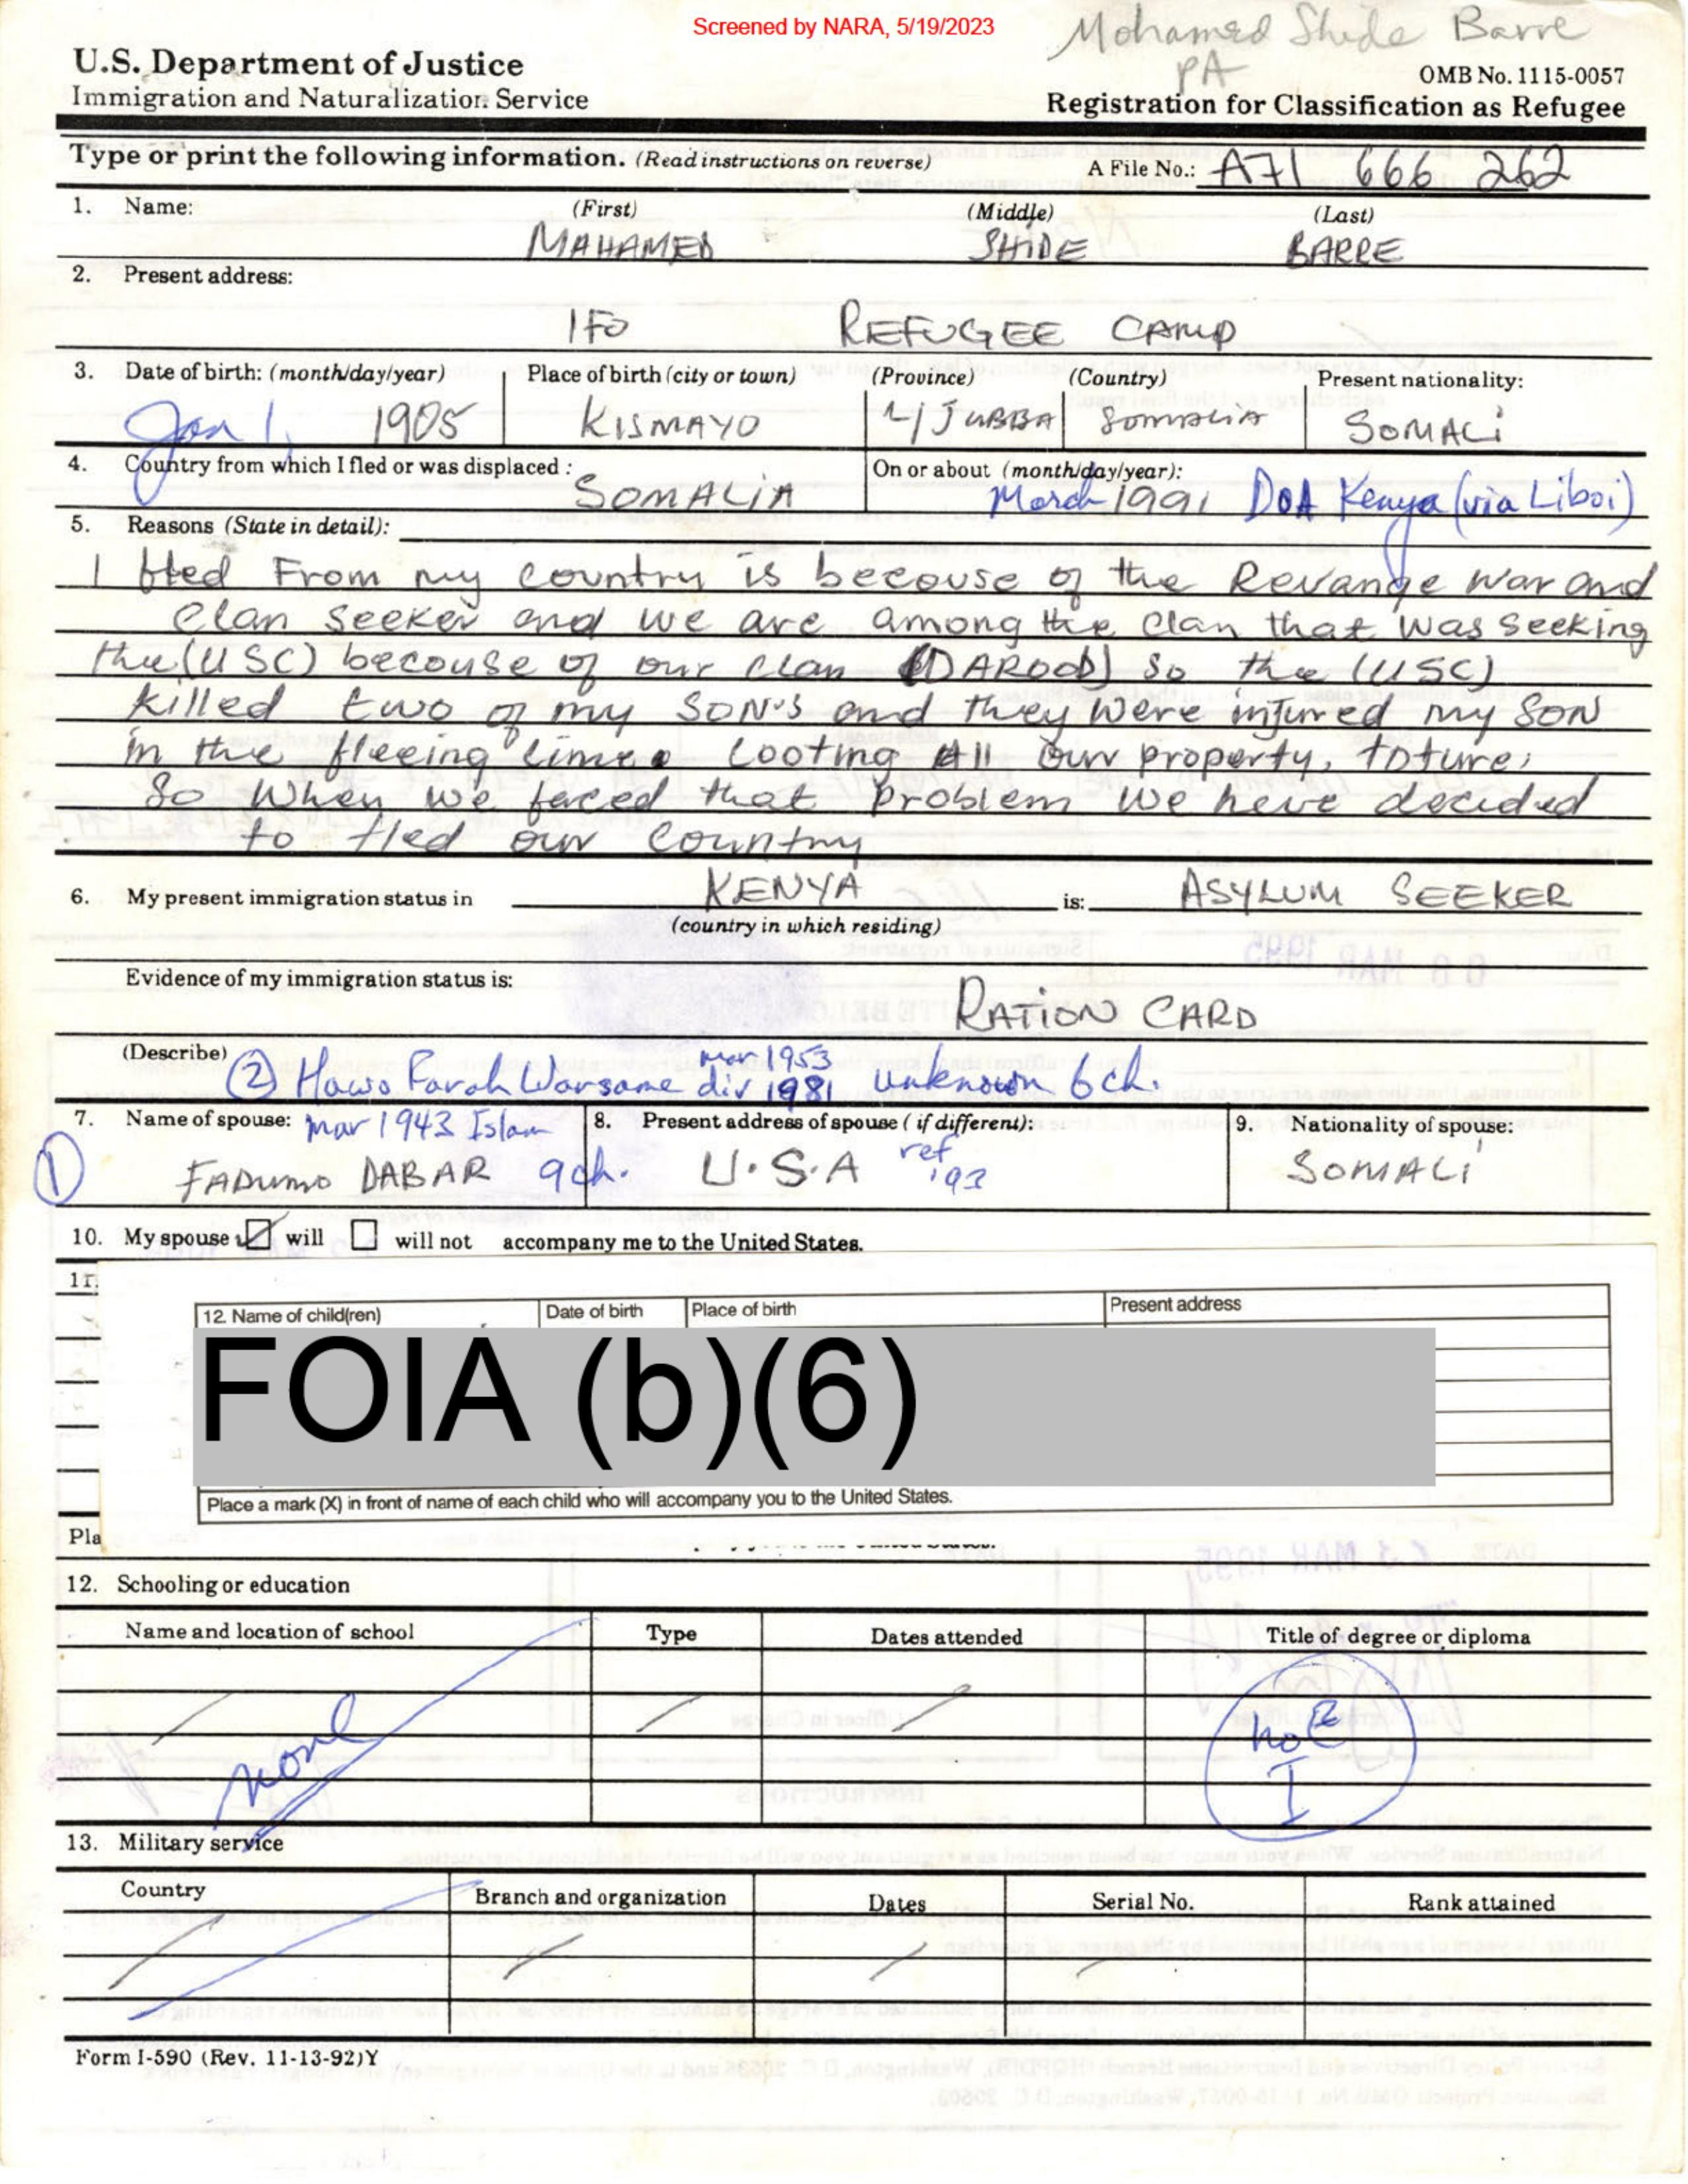 Screened by NARA, 5/19/2023
Mohamed Shide Barre
PA
U.S. Department of Justice
Immigration and Naturalization Service
OMB No. 1115-0057
Registration for Classification as Refugee
Type or print the following information. (Read instructions on reverse)
A File No.: A71 666 262
1. Name: (First) (Middle) (Last)
MAHAMED SHIDE BARRE
2. Present address:
IFO REFUGEE CAMP
3. Date of birth: (month/day/year) Place of birth (city or town) (Province) (Country) Present nationality:
Jan 1, 1905 KISMAYO L/JUBBA SOMALIA SOMALI
4. Country from which I fled or was displaced: On or about (month/day/year):
SOMALIA March 1991 DOA Kenya (via Liboi)
5. Reasons (State in detail):
I fled From my country is becouse of the Revange war and
clan seeker and we are among the clan that was seeking
the (USC) becouse of our clan (DAROOD) so the (USC)
killed two of my SON'S and they were injured my SON
in the fleeing time. Looting All our property, toture,
So when we faced that problem we have decided
to fled our country
6. My present immigration status in KENYA is: ASYLUM SEEKER
(country in which residing)
Evidence of my immigration status is:
RATION CARD
(Describe) mar 1953
(2) Hawo Farah Warsame div 1981 unknown 6 ch.
7. Name of spouse: mar 1943 Islam 8. Present address of spouse (if different): 9. Nationality of spouse:
(1) FADUMO DABAR 9 ch. U.S.A ref '93 SOMALI
10. My spouse will will not accompany me to the United States.
11.
12. Name of child(ren) Date of birth Place of birth Present address
FOIA (b)(6)
Place a mark (X) in front of name of each child who will accompany you to the United States.
Pla
12. Schooling or education
Name and location of school Type Dates attended Title of degree or diploma
none
no E
I
13. Military service
Country Branch and organization Dates Serial No. Rank attained
Form I-590 (Rev. 11-13-92)Y